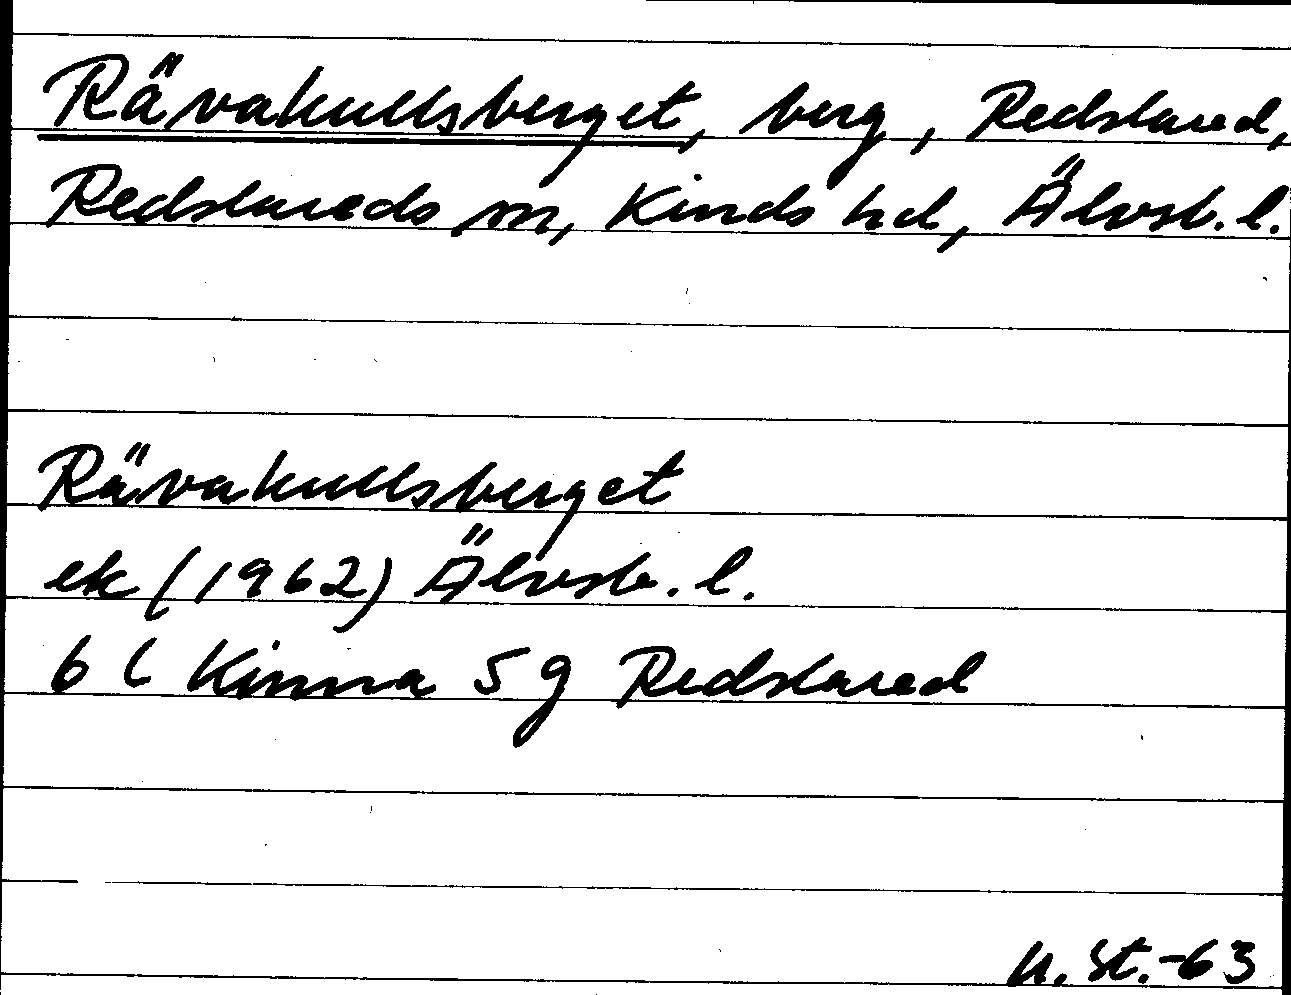 Rävakullsberget, berg, Redslared,
Redslareds sn, Kinds hd, Älvsb. l.
Rävakullsberget
ek (1962) Älvsb. l.
6 C Kinna 5 g Redslared
U. St.-63